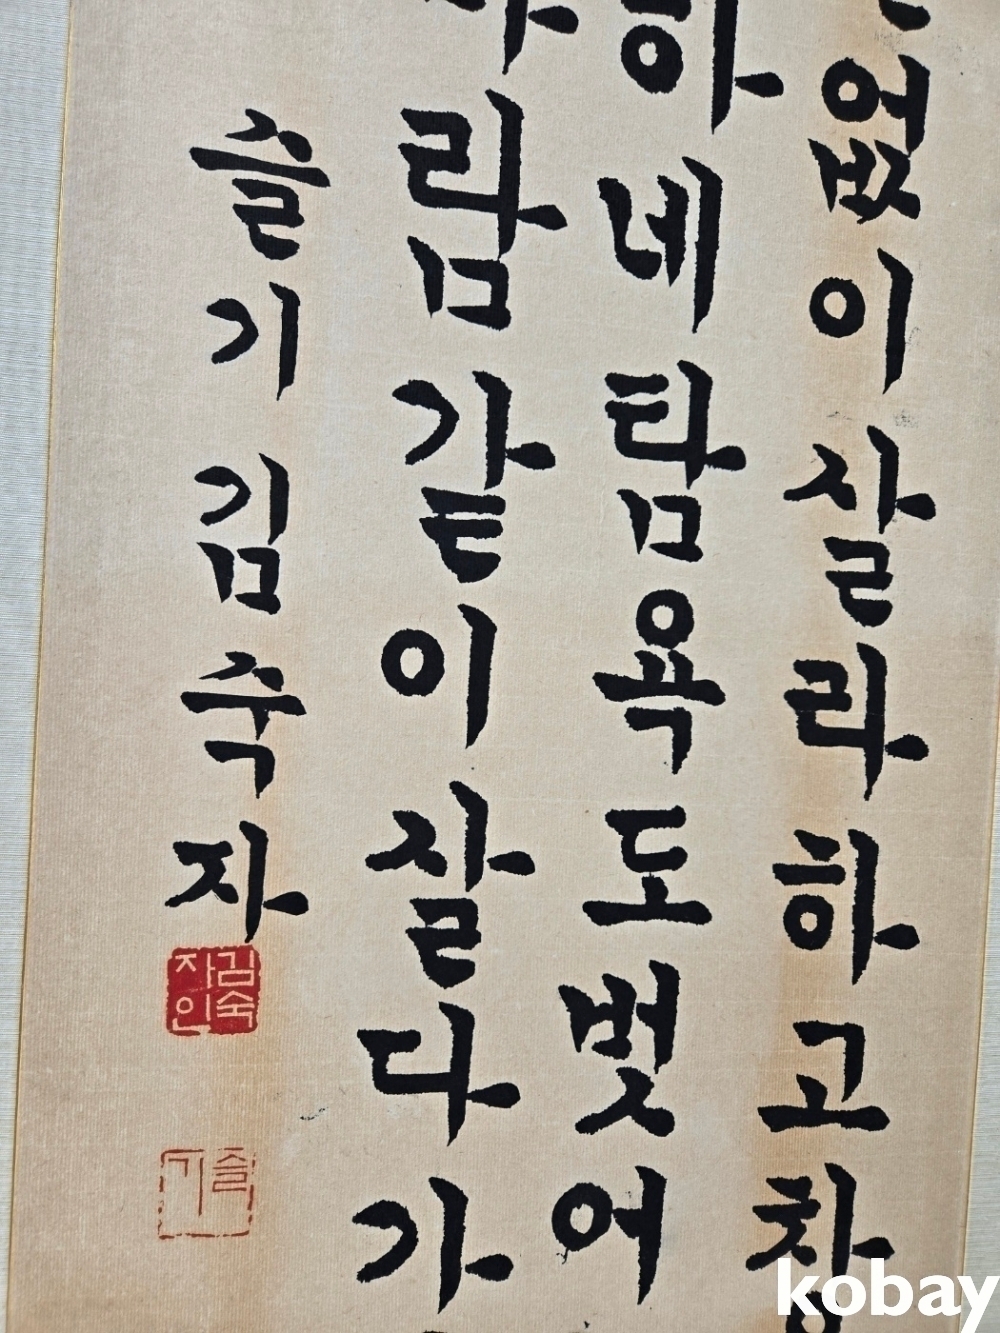 없이살라하고창
하네탐욕도벗어
람같이살다가
슬기김숙자
김숙자인
슬기
kobay